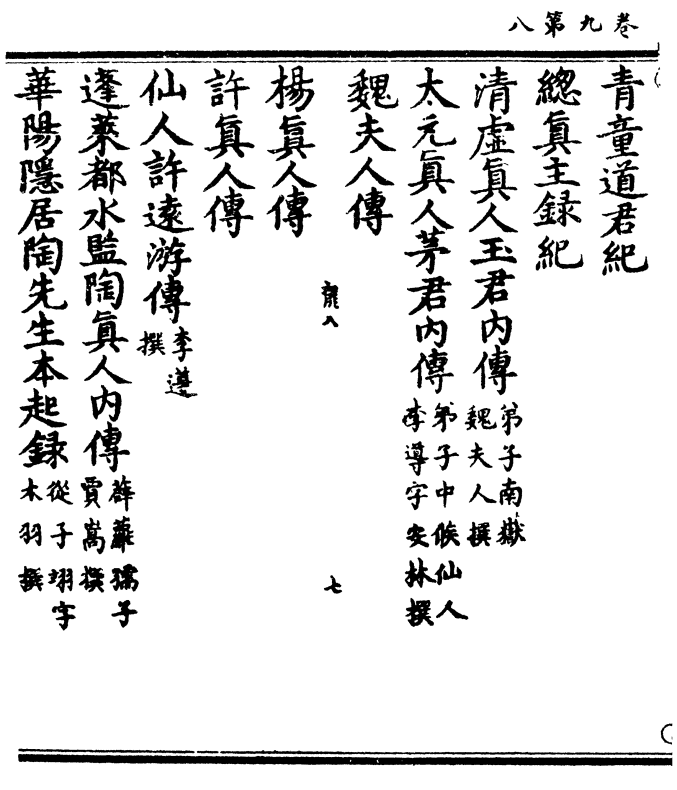 卷九第八
青童道君紀
總真主録紀
清虛真人王君内傳 弟子南嶽
魏夫人撰
太元真人茅君内傳 弟子中候仙人
李遵字安林撰
魏夫人傳
八
七
楊真人傳
許真人傳
仙人許遠游傳 李遵
撰
蓬萊都水監陶真人内傳 薜蘿孺子
賈嵩撰
華陽隱居陶先生本起録 從子翊字
木羽撰